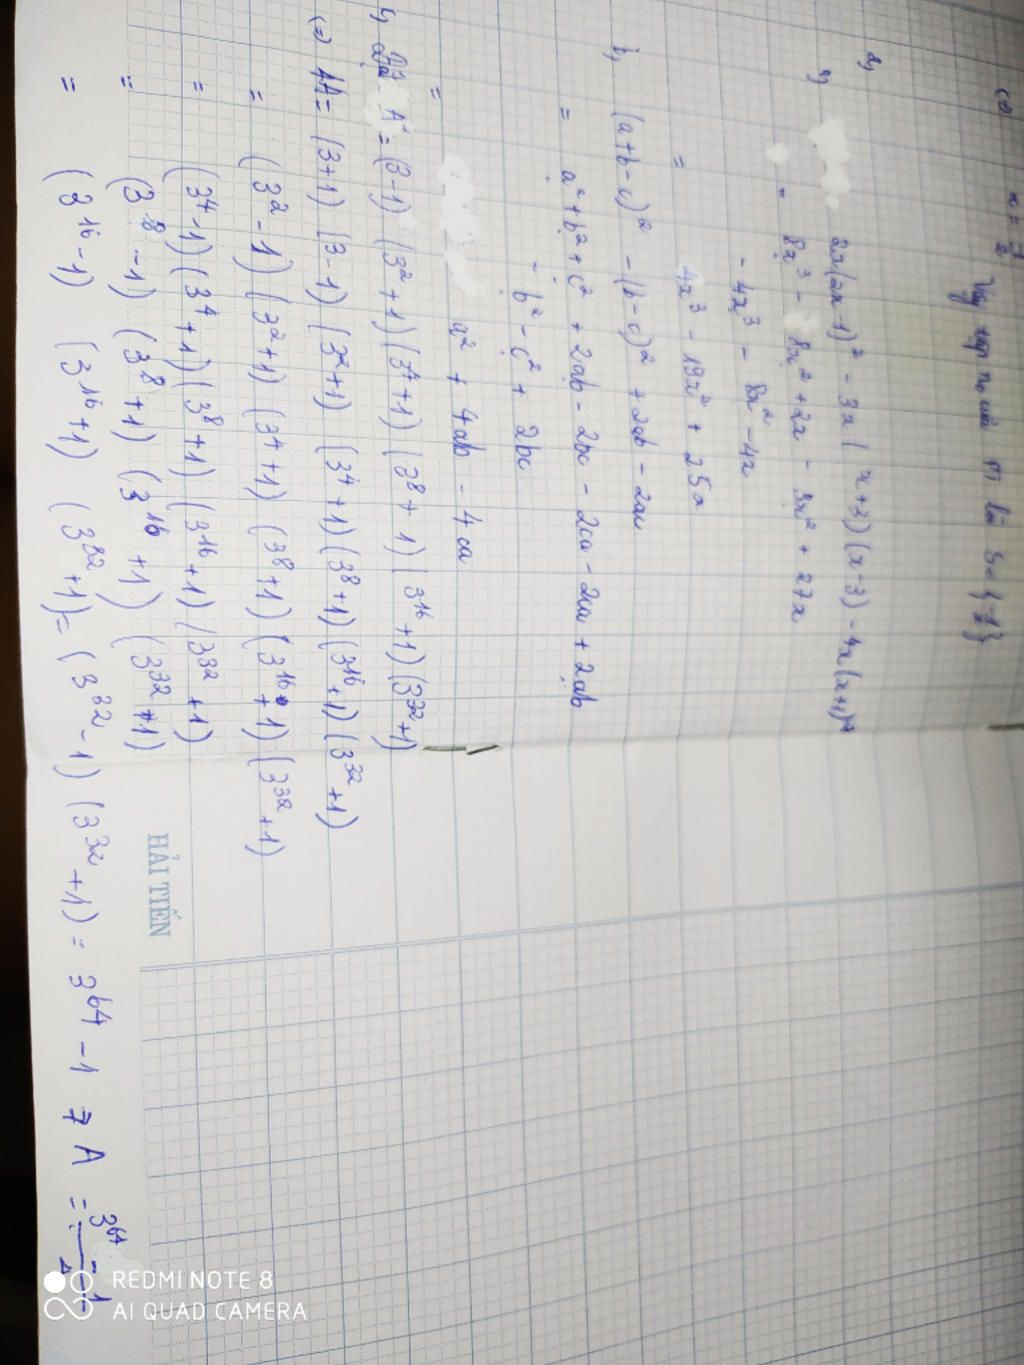 (=) x =
Vậy tập no của PT là S = {
2,
a,
2x(2x-1)² - 3x(x+3)(x-3) - 4x(x+1)²
= 8x³ - 8x² + 2x - 3x² + 27x
- 4x³ - 8x² - 4x
= 4x³ - 19x² + 25x
b, (a+b-c)² - (b-c)² + 2ab - 2ac
= a² + b² + c² + 2ab - 2bc - 2ca - 2ca + 2ab
- b² - c² + 2bc
= a² + 4ab - 4ca
A = (3-1) (3²+1) (3⁴+1) (3⁸+1) (3¹⁶+1) (3³²+1)
(=) 4A = (3+1) (3-1) (3²+1) (3⁴+1) (3⁸+1) (3¹⁶+1) (3³²+1)
= (3²-1) (3²+1) (3⁴+1) (3⁸+1) (3¹⁶+1) (3³²+1)
= (3⁴-1) (3⁴+1) (3⁸+1) (3¹⁶+1) (3³²+1)
= (3⁸-1) (3⁸+1) (3¹⁶+1) (3³²+1)
= (3¹⁶-1) (3¹⁶+1) (3³²+1) = (3³²-1) (3³²+1) = 3⁶⁴-1 => A = 3⁶⁴-1/4
HẢI TIẾN
REDMI NOTE 8
AI QUAD CAMERA